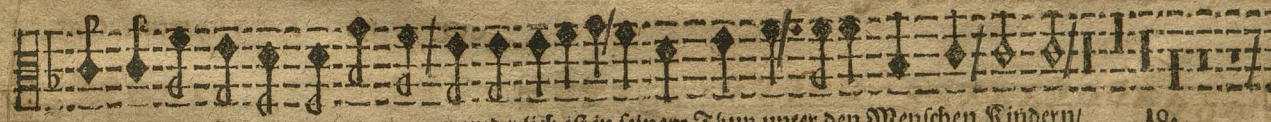 ist in seinem Thun unter den Menschen Kindern/ 18.